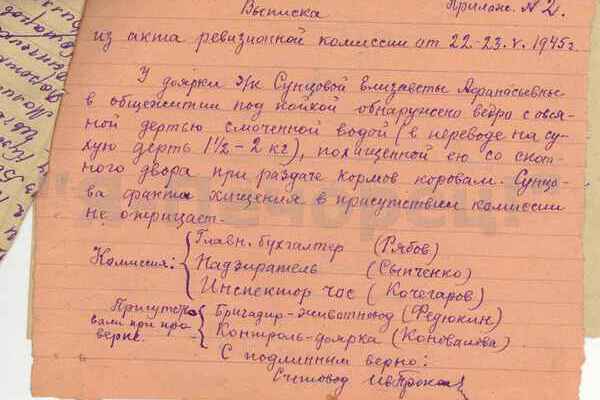 Выписка
Прилож. № 2.
из акта ревизионной комиссии от 22-23.V.1945г
У доярки з/к Сунцовой Елизаветы Афанасьевны
в общежитии под койкой обнаружено ведро с овся-
ной дертью смоченной водой (в переводе на су-
хую дерть 1½ - 2 кг), похищенной ею со скот-
ного двора при раздаче кормов коровам. Сунцо-
ва факта хищения в присутствии комиссии
не отрицает.
Комиссия:
Главн. бухгалтер (Рябов)
Надзиратель (Сыпченко)
Инспектор ЧОС (Кочегаров)
Присутство-
вали при про-
верке.
Бригадир-животновод (Федюкин)
Контроль-доярка (Коновалова)
С подлинным верно:
Счетовод